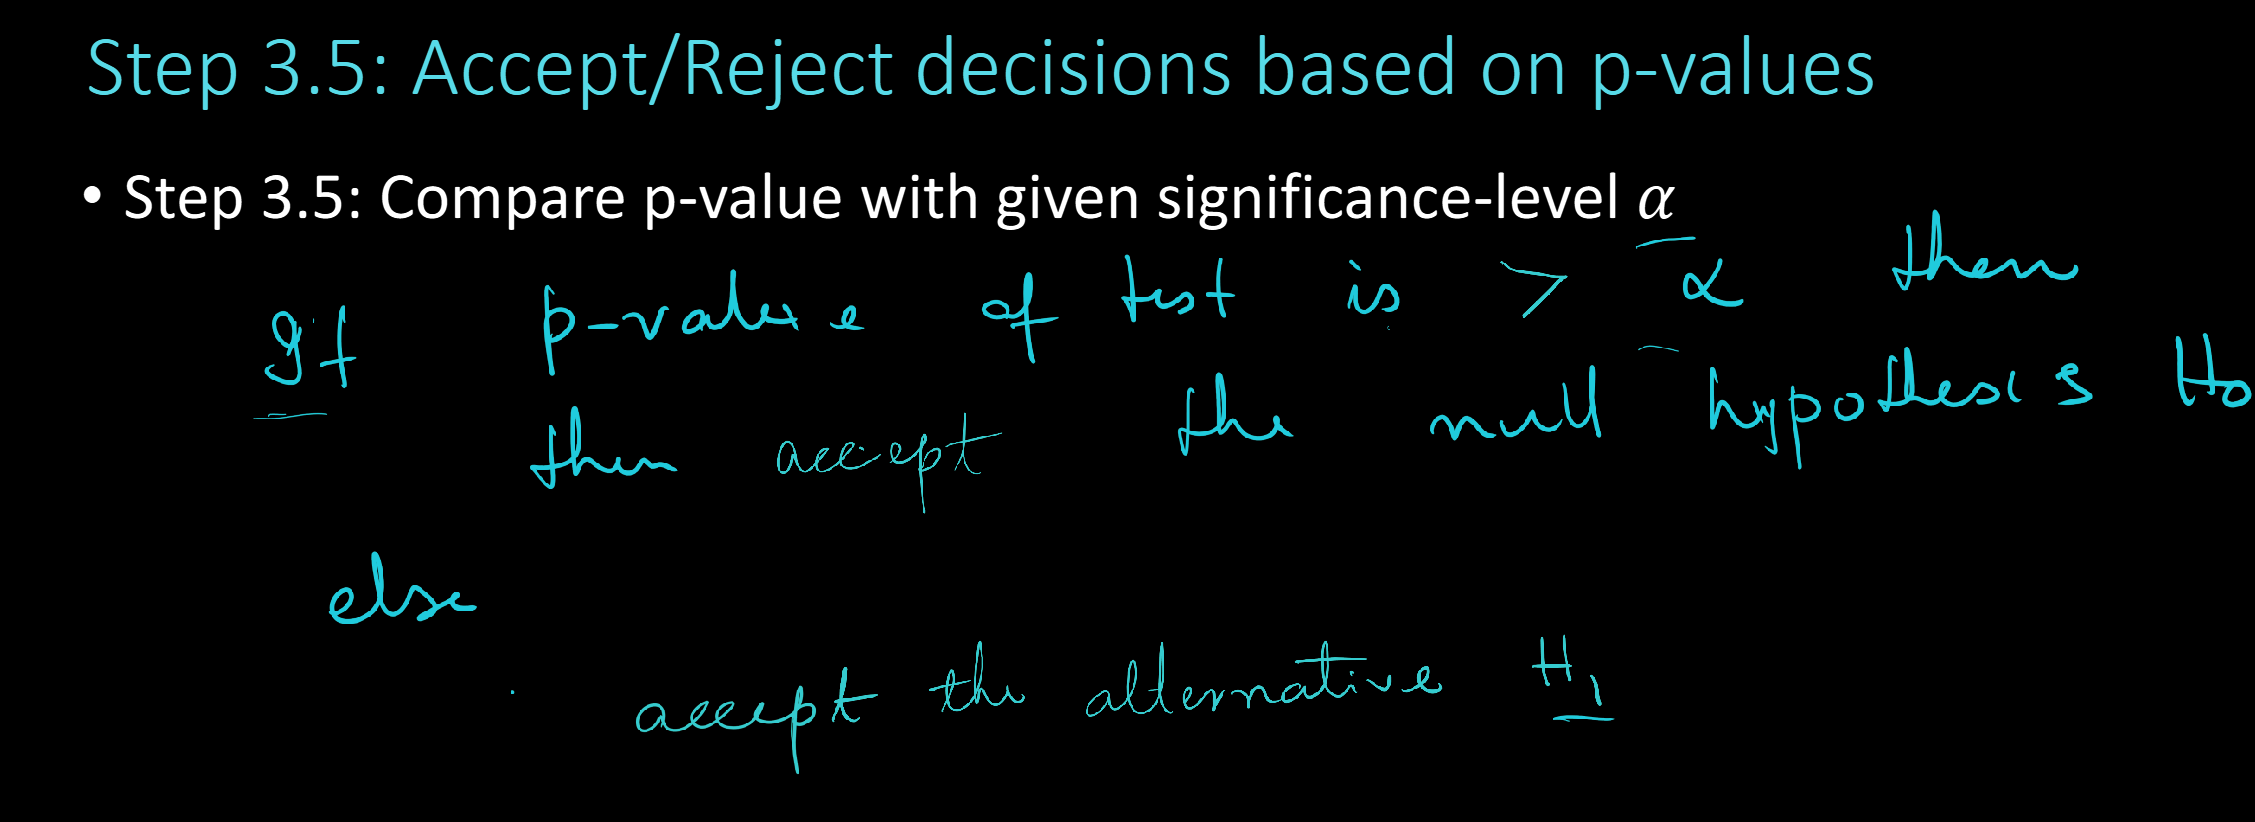 Step 3.5: Accept/Reject decisions based on p-values
• Step 3.5: Compare p-value with given significance-level α
If p-value of test is > α then
then accept the null hypothesis H0
else
accept the alternative H1